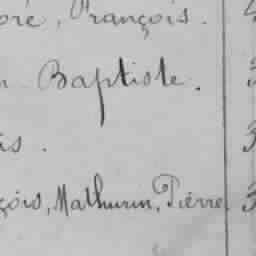 oré, François.
n Baptiste.
is.
çois, Mathurin, Pierre 3